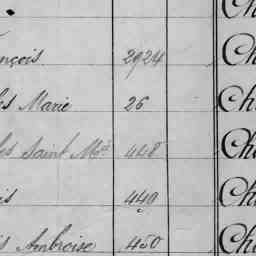 Ch
nçois 2924 Ch
les Marie 26 Ch
les Saint Mc 448 Cha
is 449 Cha
is Ambroise 450 Cha